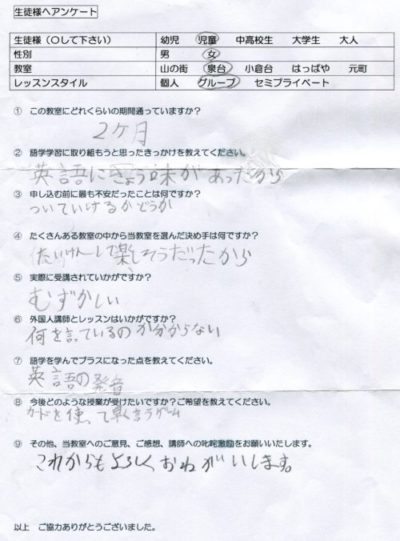 生徒様へアンケート
生徒様(○して下さい) 幼児 児童 中高校生 大学生 大人
性別 男 女
教室 山の街 泉台 小倉台 はっぱや 元町
レッスンスタイル 個人 グループ セミプライベート
① この教室にどれくらいの期間通っていますか?
2ケ月
② 語学学習に取り組もうと思ったきっかけを教えてください。
英語にきょう味があったから
③ 申し込む前に最も不安だったことは何ですか?
ついていけるかどうか
④ たくさんある教室の中から当教室を選んだ決め手は何ですか?
たいけんして楽しそうだったから
⑤ 実際に受講されていかがですか?
むずかしい
⑥ 外国人講師とレッスンはいかがですか?
何を言っているのか分からない
⑦ 語学を学んでプラスになった点を教えてください。
英語の発音
⑧ 今後どのような授業が受けたいですか?ご希望を教えてください。
カードを使って早く言うゲーム
⑨ その他、当教室へのご意見、ご感想、講師への叱咤激励をお願いいたします。
これからもよろしくおねがいします。
以上 ご協力ありがとうございました。